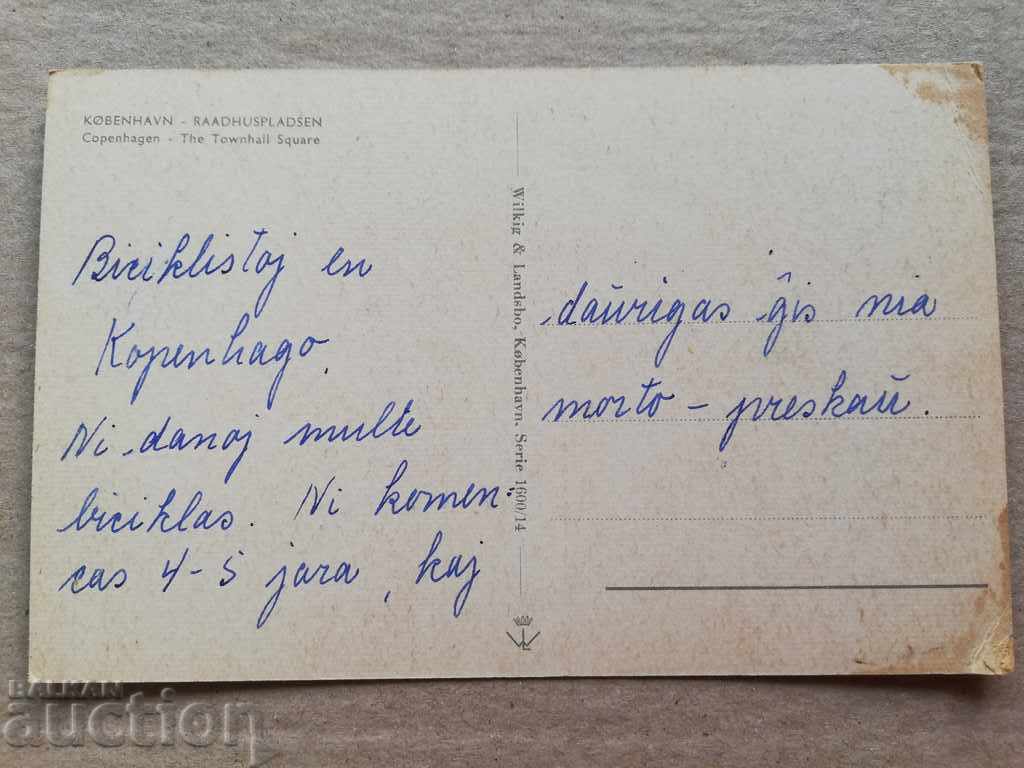 KØBENHAVN - RAADHUSPLADSEN
Copenhagen - The Townhall Square
Biciklistoj en
Kopenhago.
Ni danoj multe
biciklas. Ni komen-
cas 4-5 jara, kaj
daŭrigas ĝis nia
morto - preskaŭ.
Wilkig & Landsbo, København. Serie 1600/14
BALKAN
auction